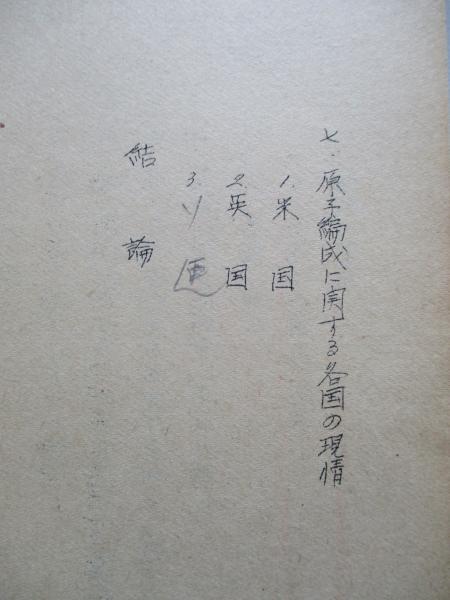 七、原子編成に関する各国の現情
1. 米国
2. 英国
3. ソ連
結論